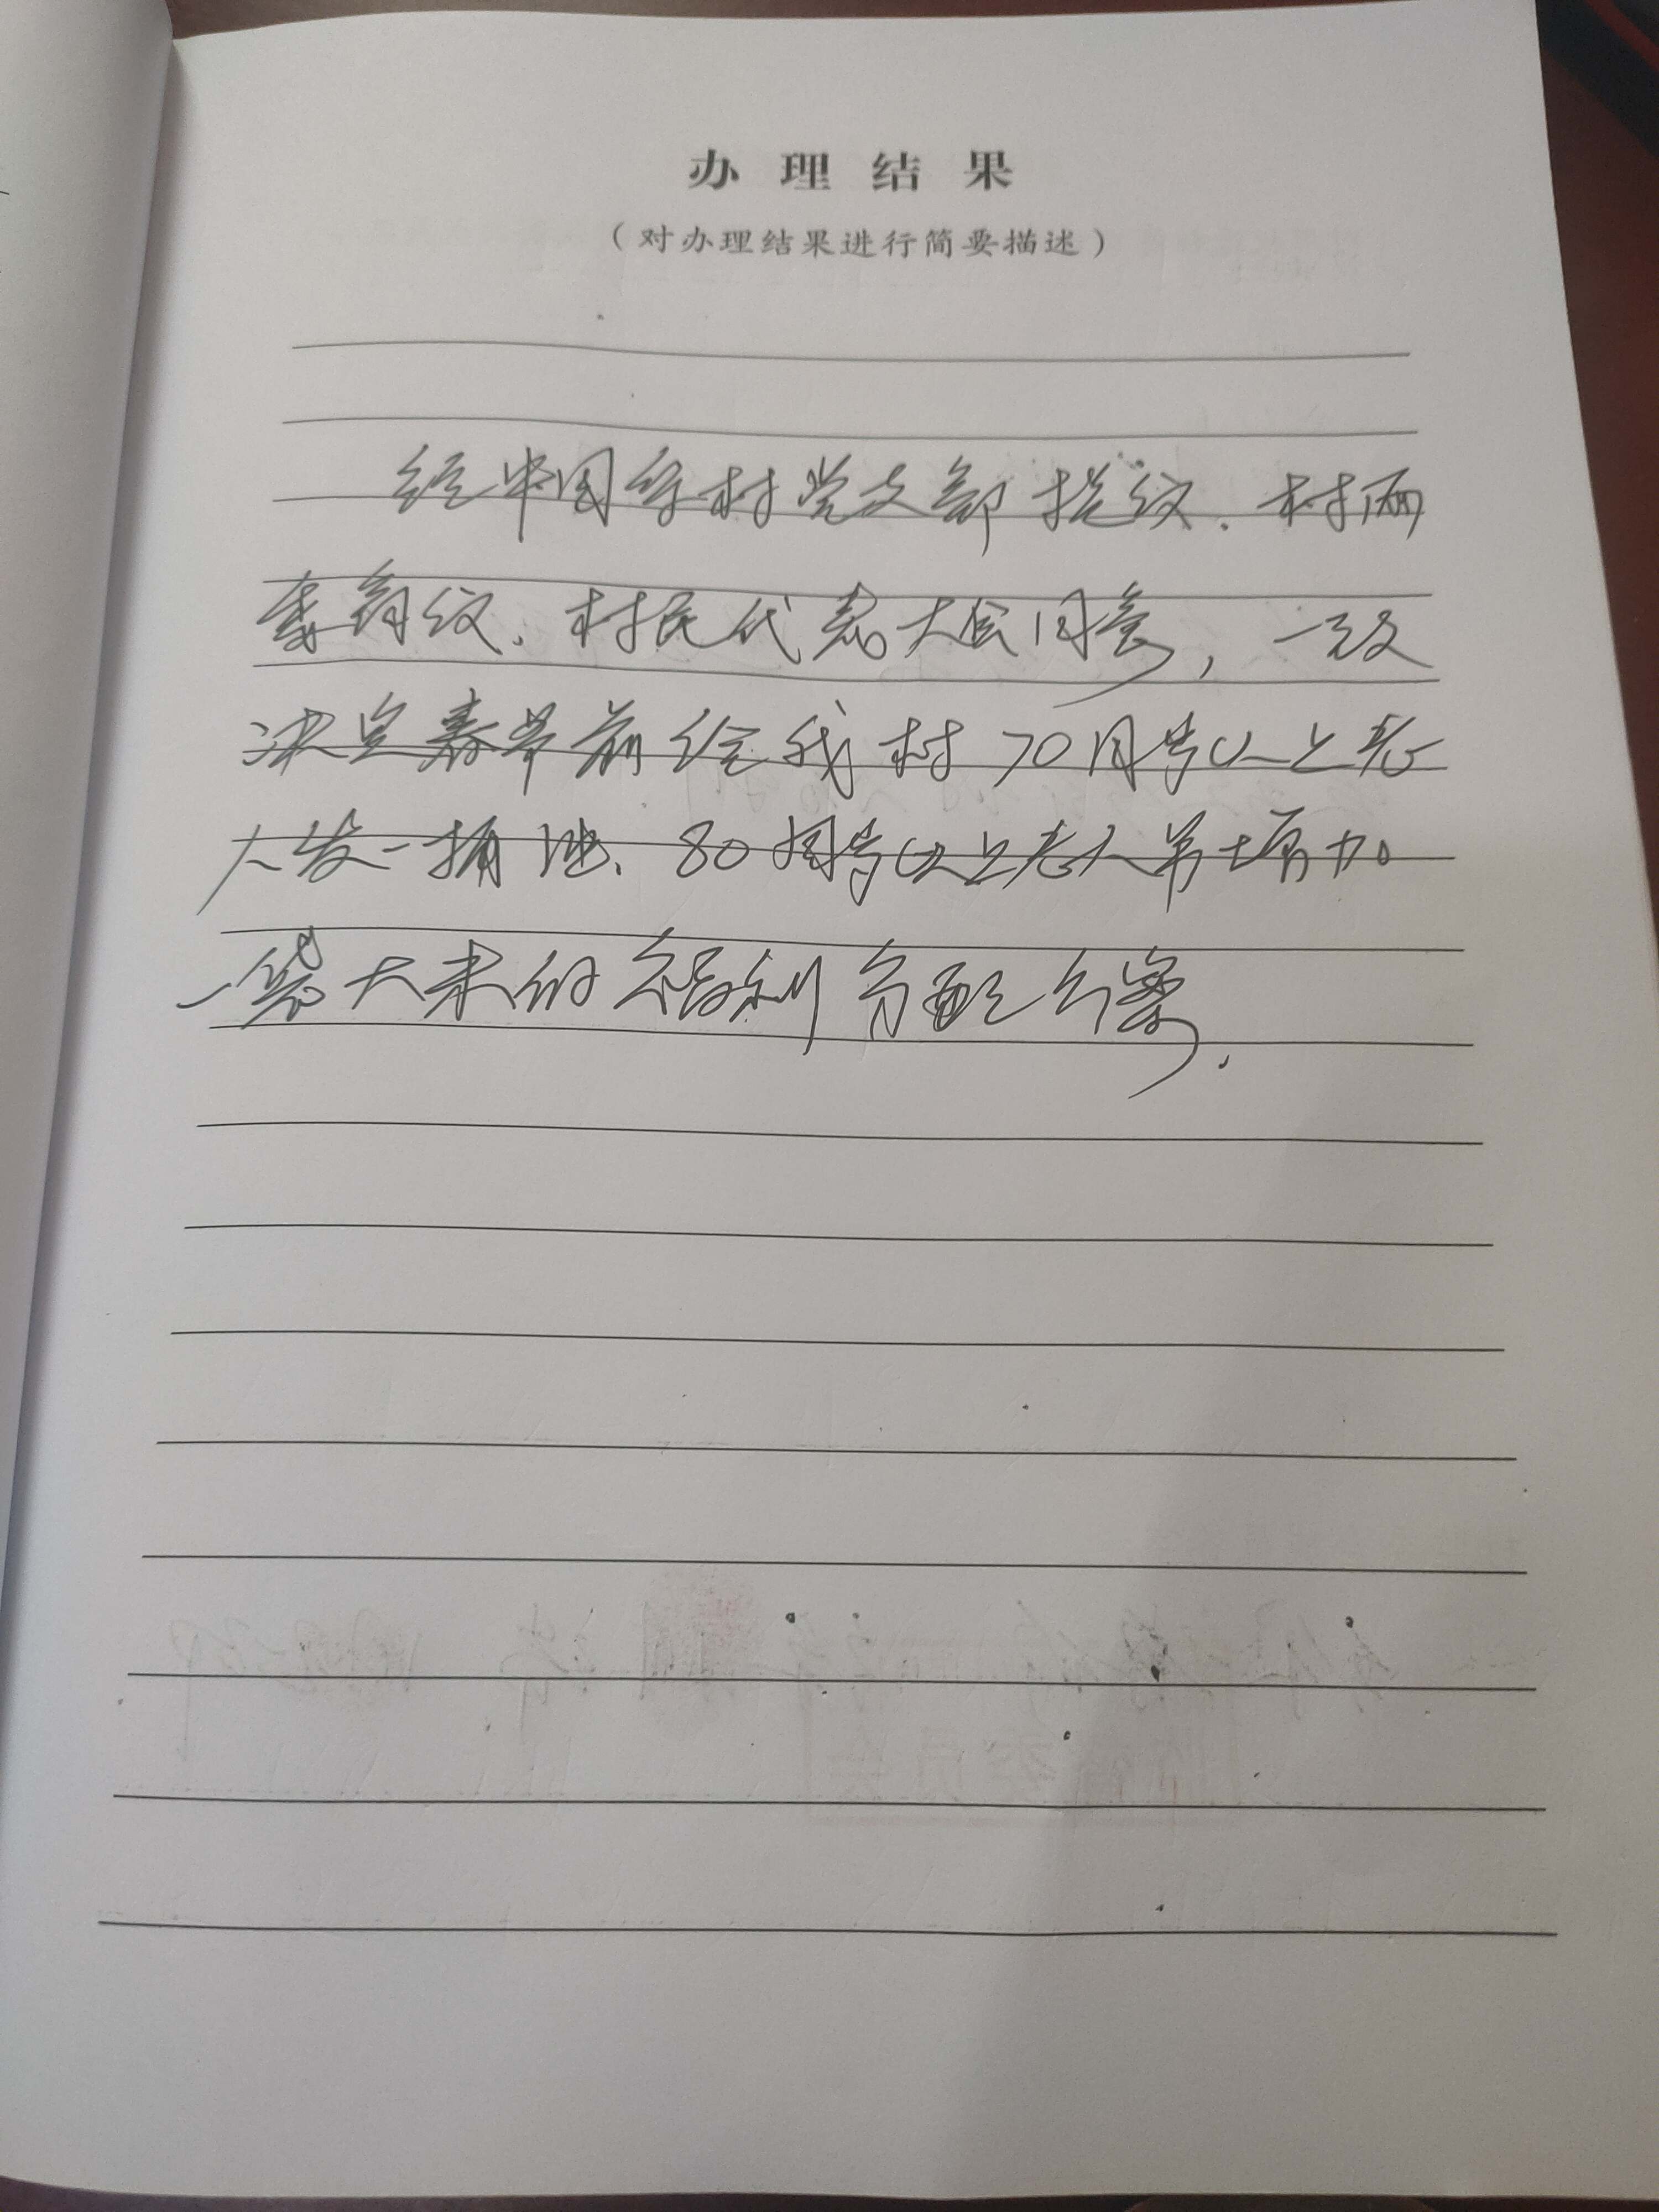 办理结果
（对办理结果进行简要描述）
经中周村党支部提议、村两
委商议、村民代表大会同意，一致
决定春节前给我村70周岁以上老
人发一桶油、80周岁以上老人另增加
一袋大米的福利分配方案.